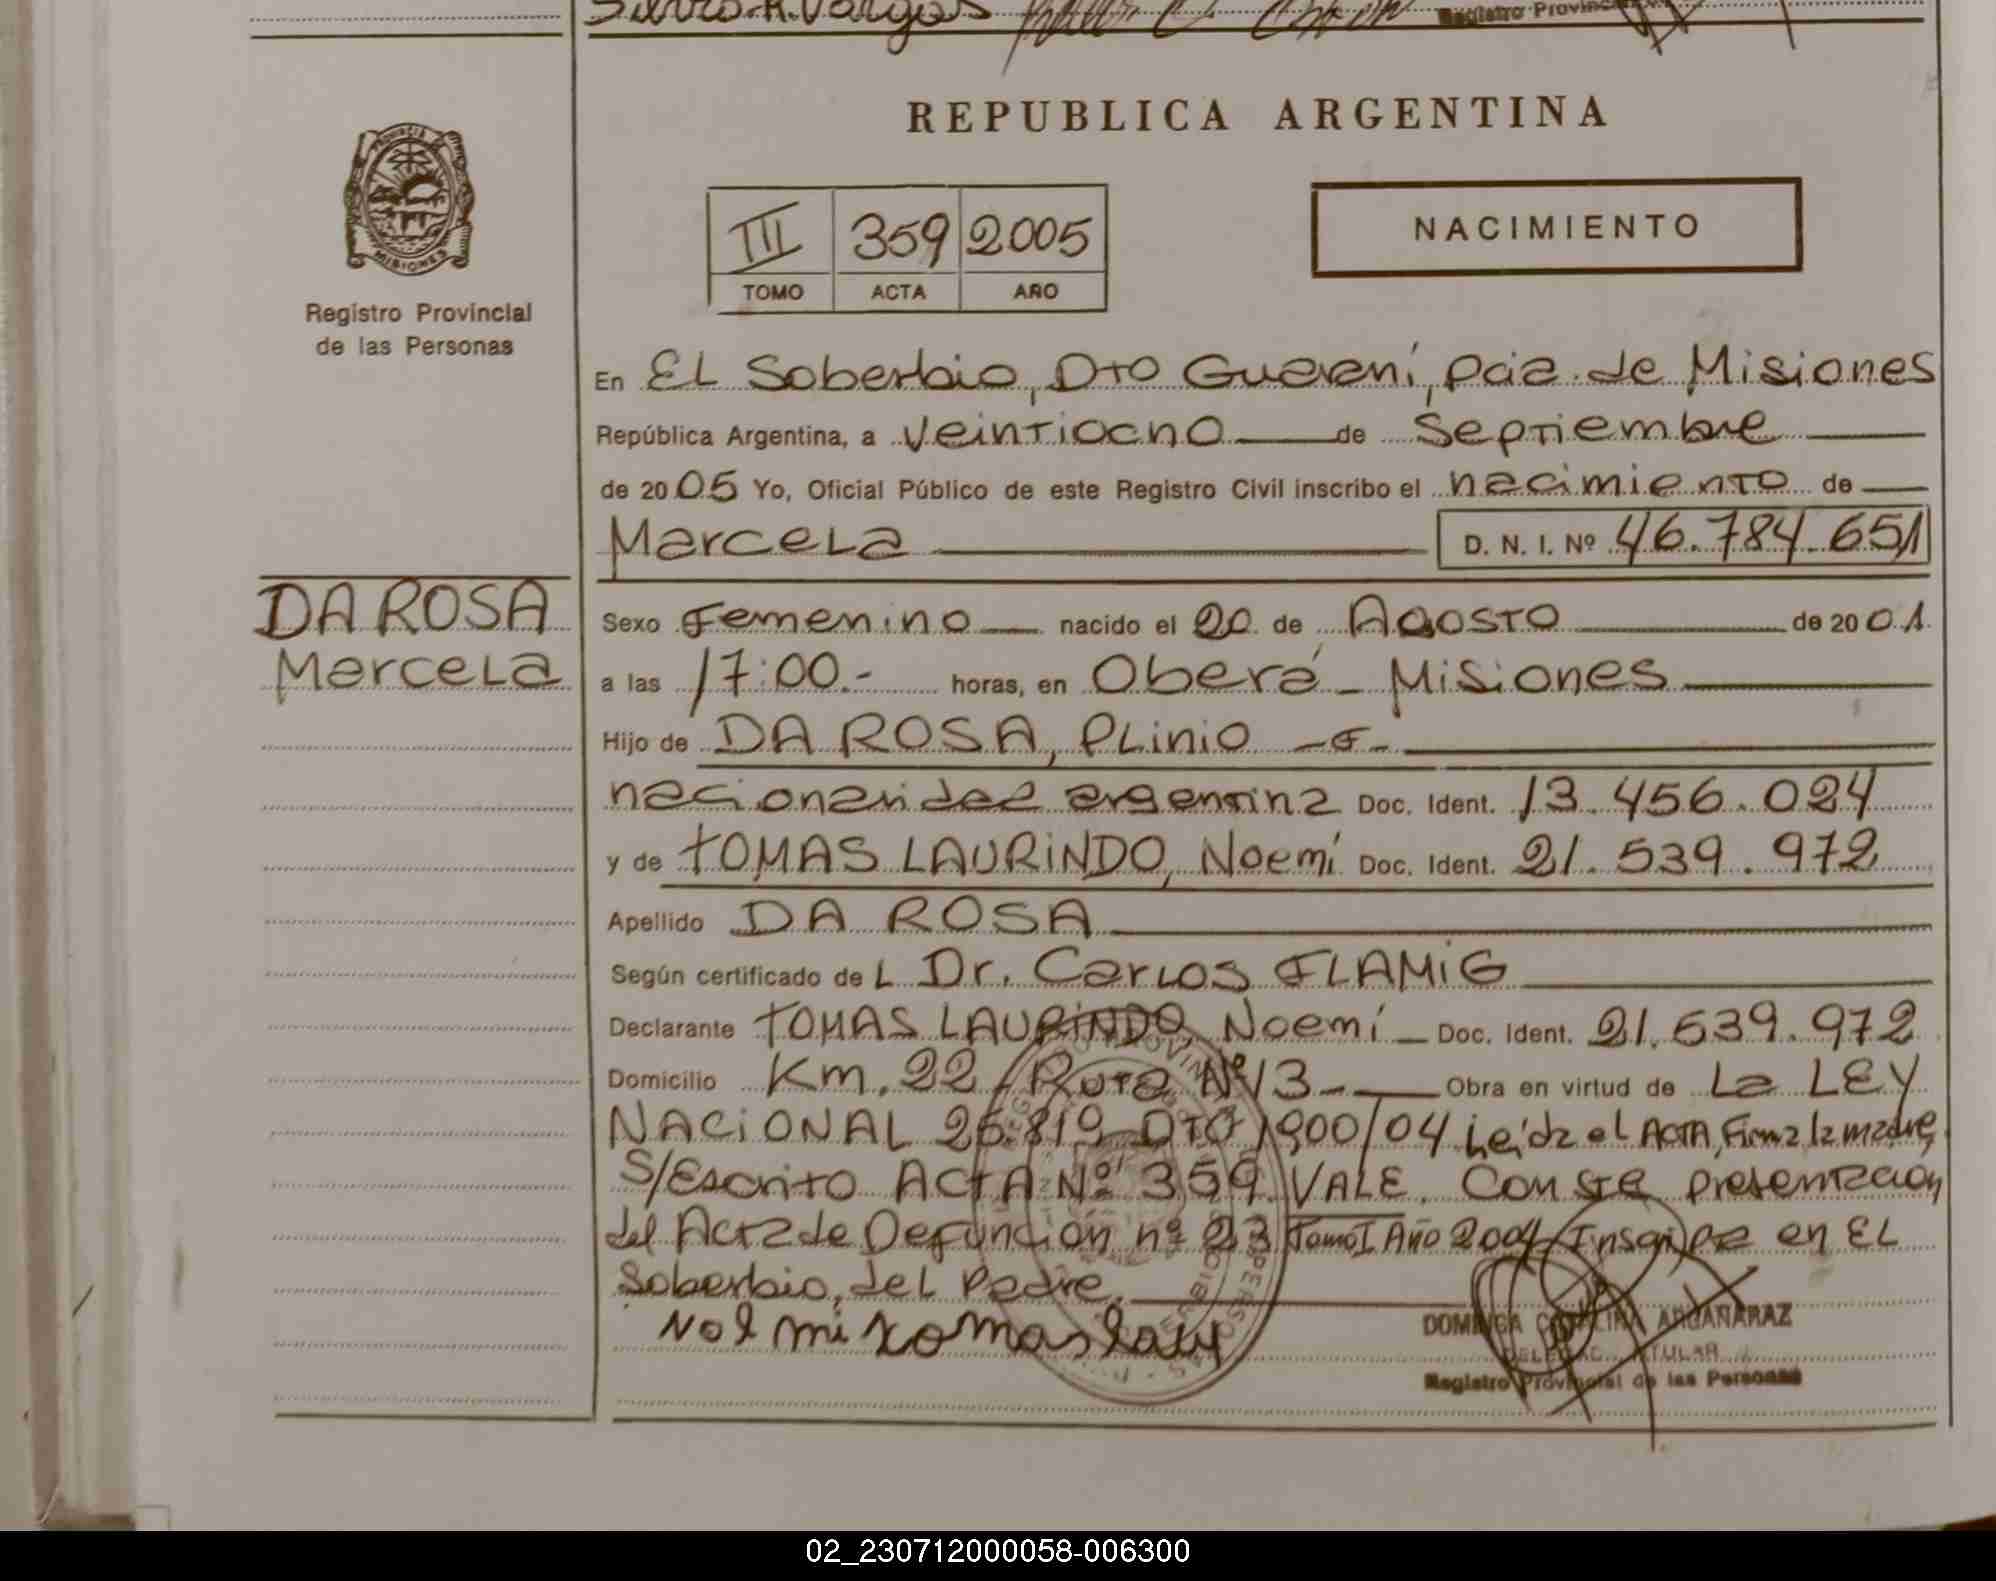 Silvio R. Vargas
Registro Provincial
REPUBLICA ARGENTINA
PROVINCIA DE
MISIONES
Registro Provincial
de las Personas
III 359 2005
TOMO ACTA AÑO
NACIMIENTO
En El Soberbio, Dto Guaraní, Pcia. de Misiones
República Argentina, a veintiocho de Septiembre
de 2005 Yo, Oficial Público de este Registro Civil inscribo el nacimiento de
Marcela D. N. I. Nº 46.784.651
DA ROSA
Marcela
Sexo Femenino nacido el 20 de Agosto de 2001.
a las 17:00.- horas, en Oberá - Misiones
Hijo de DA ROSA, Plinio -F-
nacionalidad argentina Doc. Ident. 13.456.024
y de TOMAS LAURINDO, Noemí Doc. Ident. 21.539.972
Apellido DA ROSA
Según certificado del Dr. Carlos FLAMIG
Declarante TOMAS LAURINDO, Noemí Doc. Ident. 21.539.972
Domicilio Km. 22 - Ruta Nº 13 - Obra en virtud de La LEY
NACIONAL 25.819 DTO 1900/04 Leída el ACTA, Firma la madre,
S/Escrito ACTA Nº 359. VALE. Conste presentacion
del Acta de Defunción nº 23 Tomo I Año 2004 Inscripta en EL
Soberbio, del Padre.
DOMINGA CATALINA ARGAÑARAZ
DELEGADA TITULAR
Registro Provincial de las Personas
02_230712000058-006300